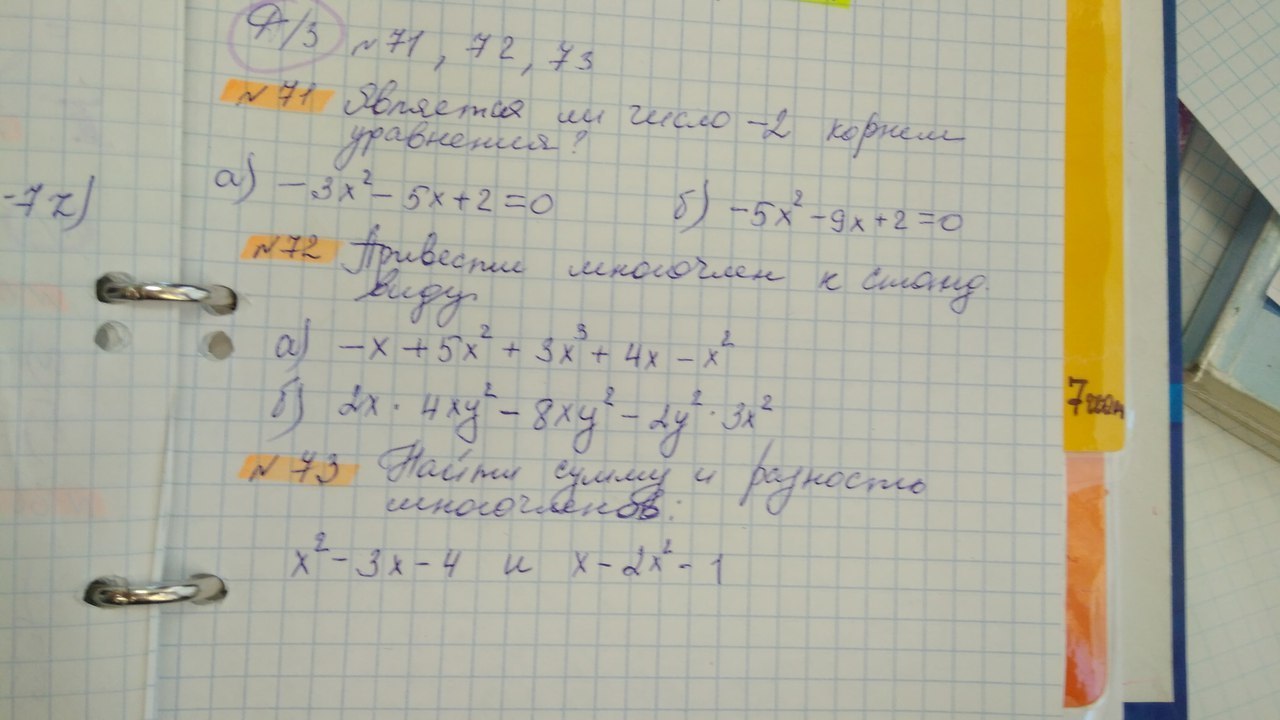 Д/З №71, 72, 73
№71 Является ли число -2 корнем
уравнения?
а) -3x²-5x+2=0 б) -5x²-9x+2=0
-7z)
№72 Привести многочлен к станд.
виду
а) -x+5x²+3x³+4x-x²
б) 2x·4xy²-8xy²-2y²·3x²
№73 Найти сумму и разность
многочленов:
x²-3x-4 и x-2x²-1